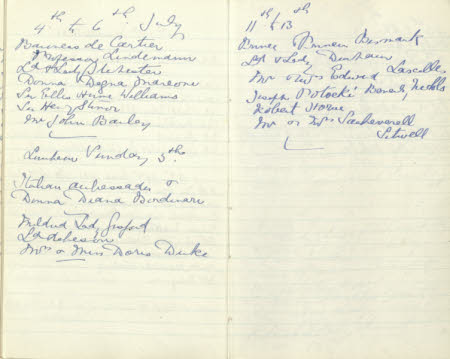 4th to 6th July
Baroness de Cartier
Professor Lindemann
Ld & Lady Ilchester
Donna Degna
Sir Ellis Hume Williams
Sir Henry
Mr John Bailey
Luncheon Sunday 5th
Italian ambassador &
Donna Diana Bordonaro
Mildred Lady Gosford
Ld
Mrs & Miss Doris Duke
11th to 13
Prince Princess Bismark
Ld & Lady Dunham
Mr & Mrs Edward Lascelles
Joseph Potocki Beverly Nichols
Robert Horne
Mr & Mrs Sacheverell
Sitwell